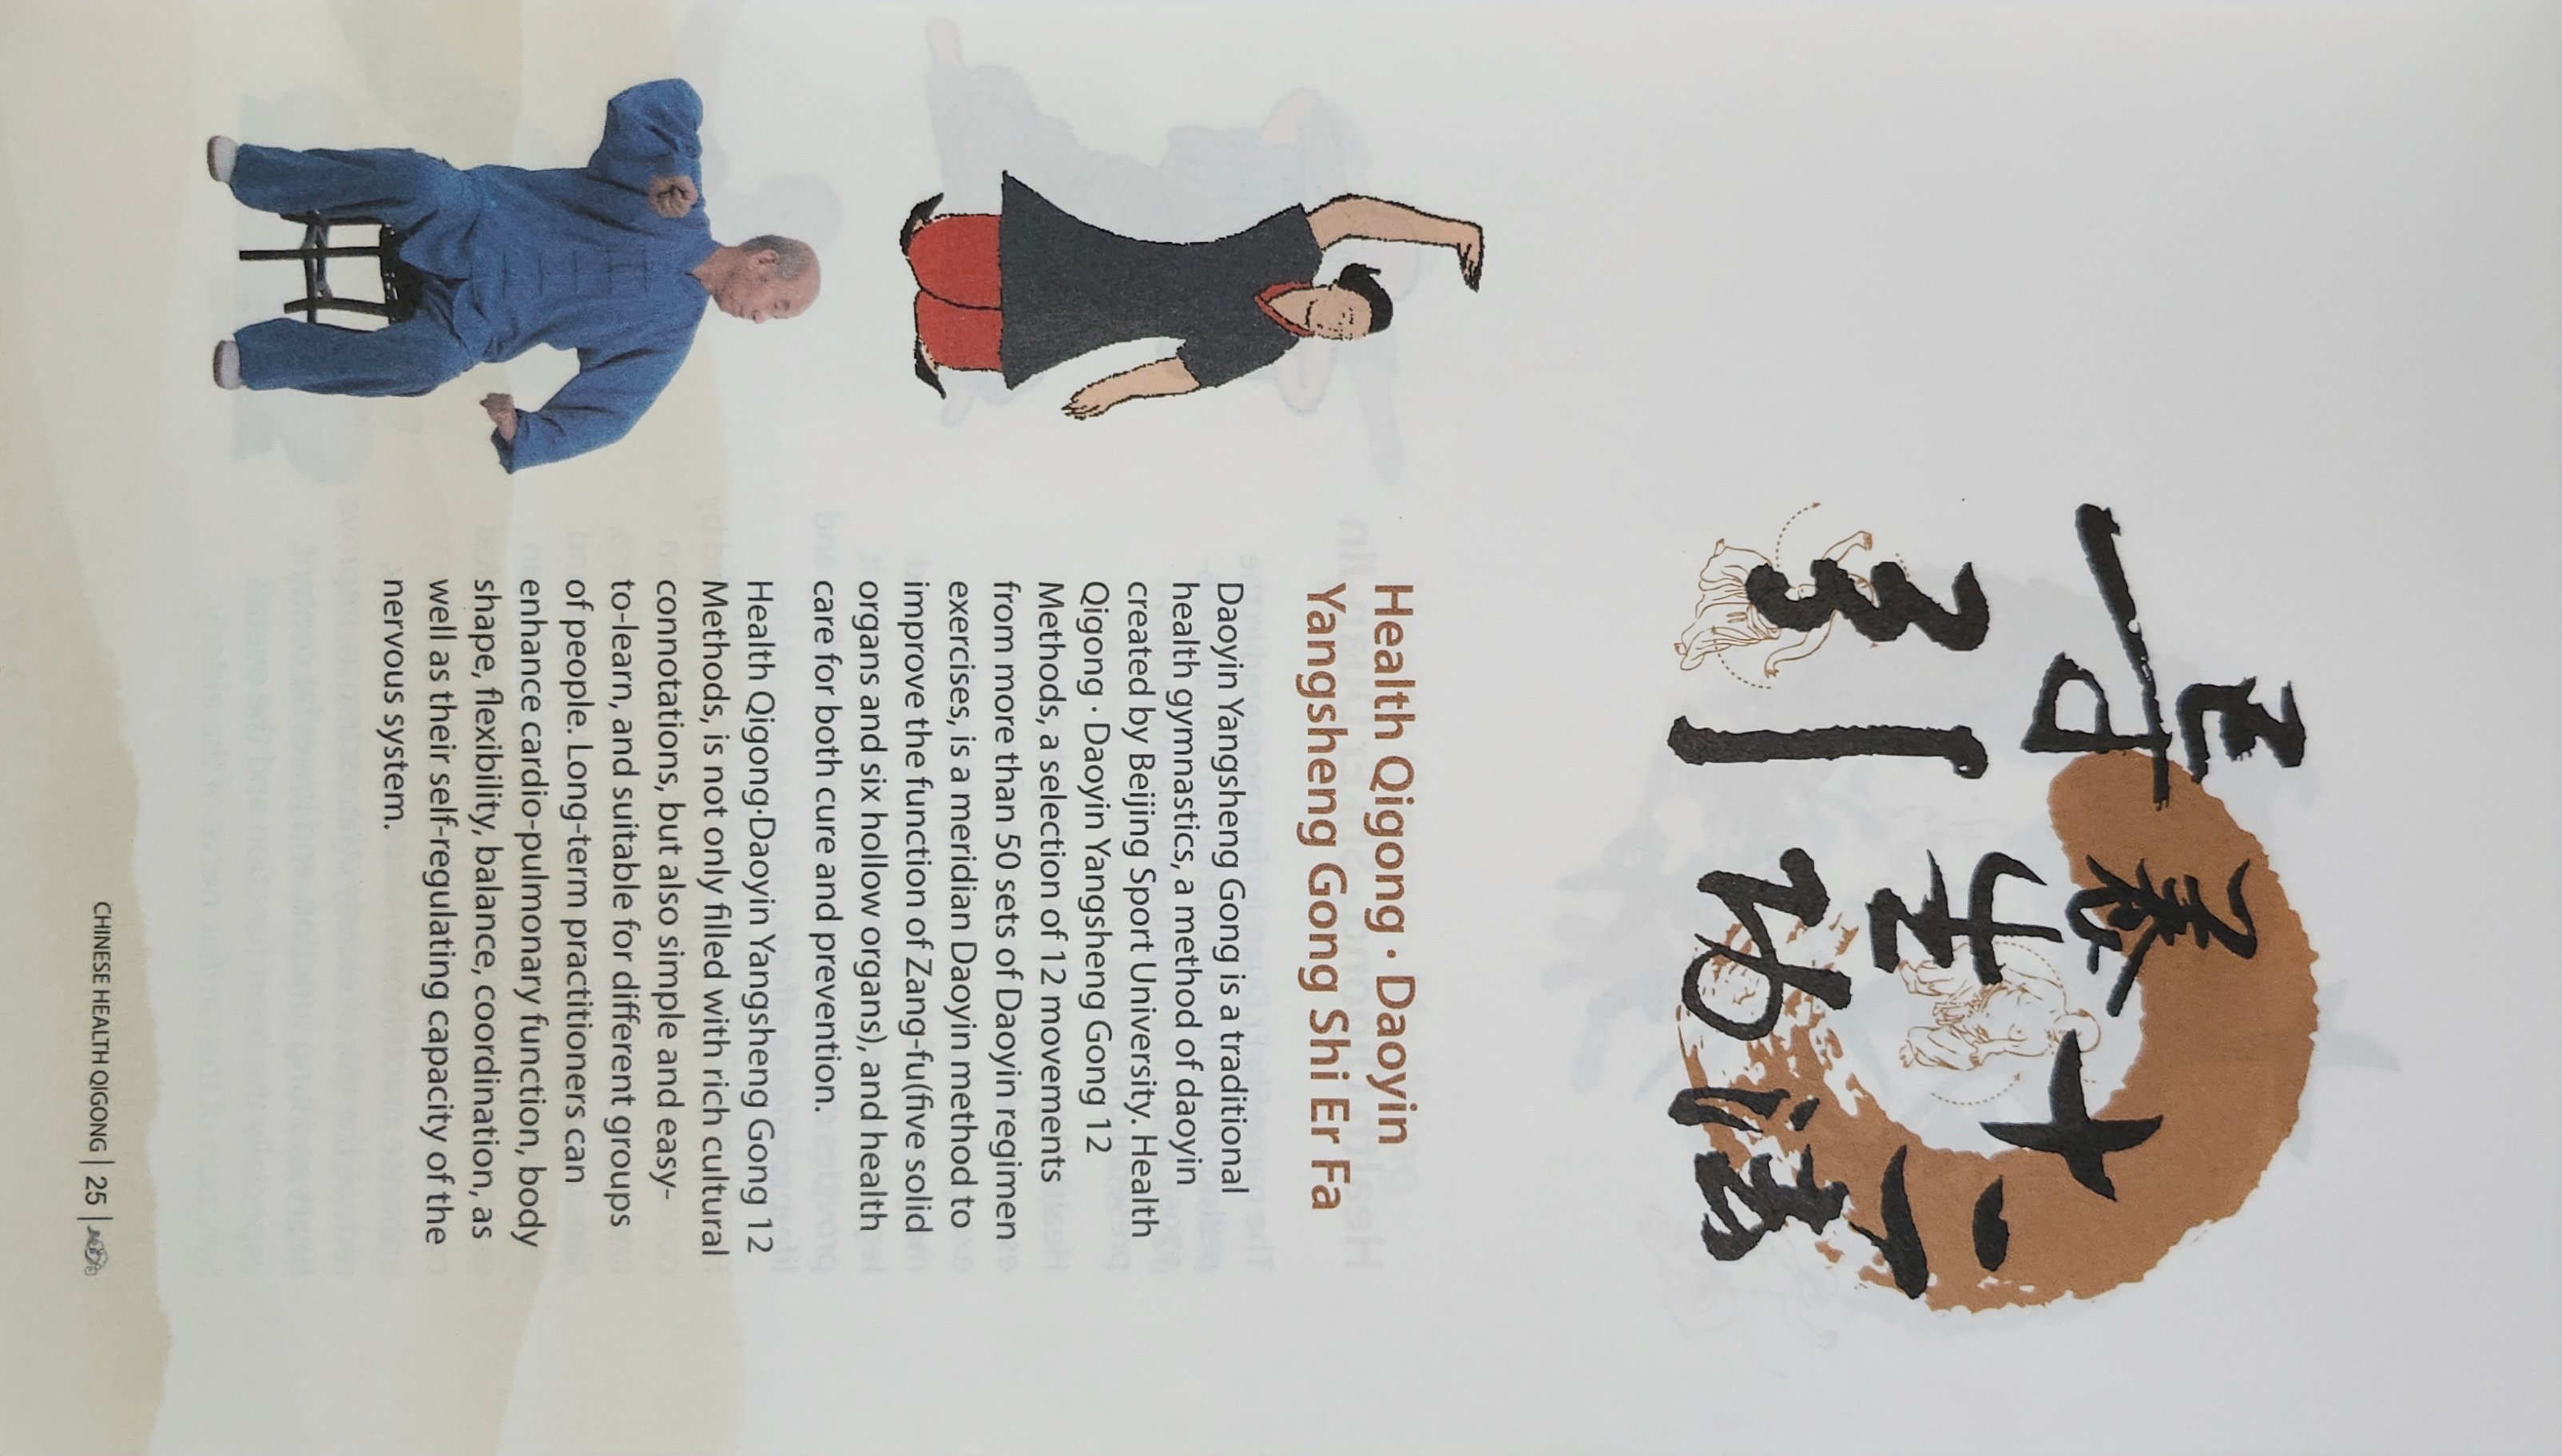 导引
养生功
十二法
Health Qigong · Daoyin
Yangsheng Gong Shi Er Fa
Daoyin Yangsheng Gong is a traditional
health gymnastics, a method of daoyin
created by Beijing Sport University. Health
Qigong · Daoyin Yangsheng Gong 12
Methods, a selection of 12 movements
from more than 50 sets of Daoyin regimen
exercises, is a meridian Daoyin method to
improve the function of Zang-fu(five solid
organs and six hollow organs), and health
care for both cure and prevention.
Health Qigong·Daoyin Yangsheng Gong 12
Methods, is not only filled with rich cultural
connotations, but also simple and easy-
to-learn, and suitable for different groups
of people. Long-term practitioners can
enhance cardio-pulmonary function, body
shape, flexibility, balance, coordination, as
well as their self-regulating capacity of the
nervous system.
CHINESE HEALTH QIGONG | 25 |